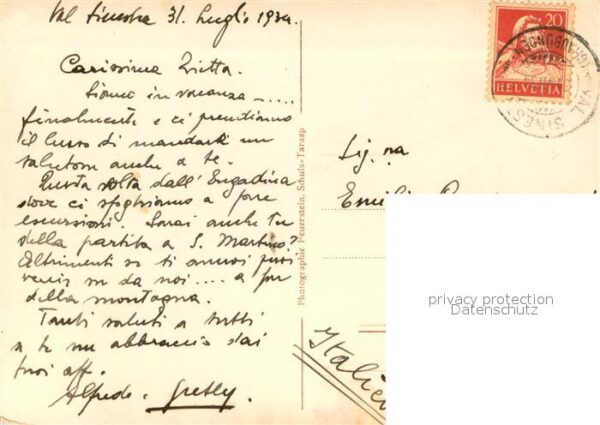 Val Sinestra 31 Luglio 193
Carissima Zietta.
Siamo in vacanza — ....
finalmente e ci prendiamo
il lusso di mandarti un
salutone anche a te.
Questa volta dall'Engadina
dove ci sfoghiamo a fare
escursioni. Sarai anche tu
della partita a S. Martino?
Altrimenti se ti annoi puoi
venir su da noi .... a far
della montagna.
Tanti saluti a tutti
a te un abbraccio dai
tuoi aff.
Alfredo - Gretly.
Photographie Feuerstein, Schuls-Tarasp
20
HELVETIA
VAL SINEST
(GRAUBÜNDEN)
Sig.na
Italien
privacy protection
Datenschutz